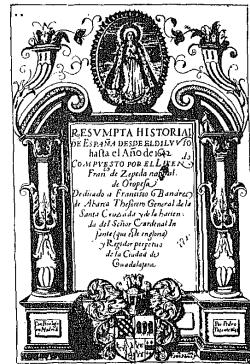 RESVMPTA HISTORIAL
DE ESPAÑA DESDE EL DILVVIO
hasta el Año de 1642
COMPVESTO POR EL LICEN.do
Fran.co de Zepeda natural
de Oropesa
Dedicado a Francisco G Bandres
de Abarca Thesorero General de la
Santa Cruzada y de la hacien
da del Señor Cardenal In
fante (que este en gloria)
y Regidor perpetuo
de la Ciudad de
Guadalajara